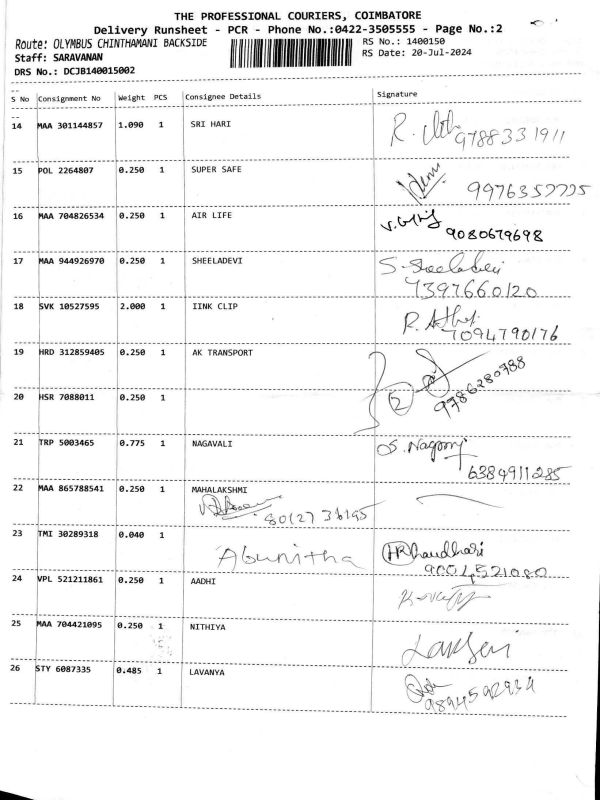 THE PROFESSIONAL COURIERS, COIMBATORE
Delivery Runsheet - PCR - Phone No.:0422-3505555 - Page No.:2
Route: OLYMBUS CHINTHAMANI BACKSIDE
RS No.: 1400150
Staff: SARAVANAN
RS Date: 20-Jul-2024
DRS No.: DCJB140015002
S No Consignment No Weight PCS Consignee Details Signature
14 MAA 301144857 1.090 1 SRI HARI R.
9788331911
15 POL 2264807 0.250 1 SUPER SAFE
9976352225
16 MAA 704826534 0.250 1 AIR LIFE
9080679698
17 MAA 944926970 0.250 1 SHEELADEVI S. Sheeladevi
7397660120
18 SVK 10527595 2.000 1 IINK CLIP R.
7094790176
19 HRD 312859405 0.250 1 AK TRANSPORT
2 9786280788
20 HSR 7088011 0.250 1
21 TRP 5003465 0.775 1 NAGAVALI
6384911285
22 MAA 865788541 0.250 1 MAHALAKSHMI
8012736195
23 TMI 30289318 0.040 1 Abunitha HR Chaudhari
9004521080
24 VPL 521211861 0.250 1 AADHI
25 MAA 704421095 0.250 1 NITHIYA
26 STY 6087335 0.485 1 LAVANYA
9894592934